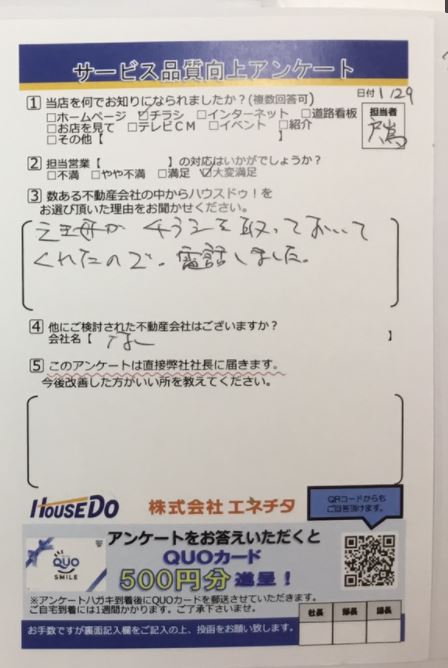 サービス品質向上アンケート
1 当店を何でお知りになられましたか?(複数回答可)
日付 1/29
□ホームページ ☑チラシ □インターネット □道路看板
□お店を見て □テレビCM □イベント □紹介
□その他【 】
担当者
2 担当営業【 】の対応はいかがでしょうか?
□不満 □やや不満 □満足 ☑大変満足
3 数ある不動産会社の中からハウスドゥ!を
お選び頂いた理由をお聞かせください。
チラシを取っておいて
くれたので、電話しました。
4 他にご検討された不動産会社はございますか?
会社名【 なし 】
5 このアンケートは直接弊社社長に届きます。
今後改善した方がいい所を教えてください。
HOUSEDO 株式会社 エネチタ
QRコードからも
ご回答頂けます。
QUO
SMILE
アンケートをお答えいただくと
QUOカード
500円分進呈!
※アンケートハガキ到着後にQUOカードを郵送させていただきます。
ご自宅到着には1週間かかります。ご了承下さいませ。
お手数ですが裏面記入欄をご記入の上、投函をお願い致します。
社長 部長 課長